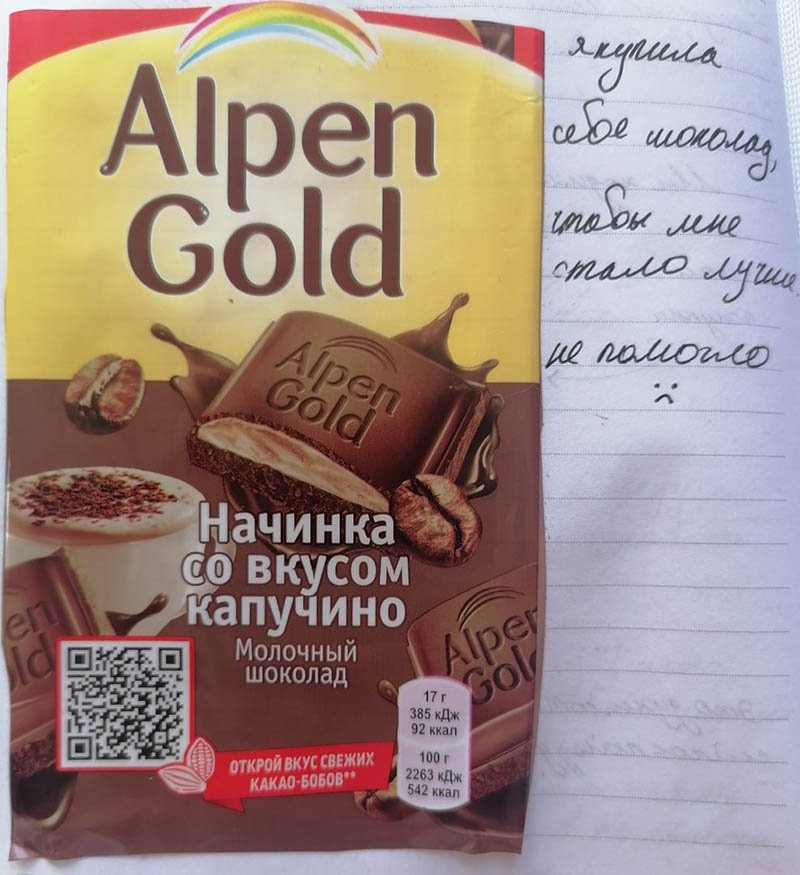 Alpen
Gold
Alpen
Gold
Начинка
со вкусом
капучино
Молочный
шоколад
en
ld
Alpen
Gol
17 г
385 кДж
92 ккал
100 г
2263 кДж
542 ккал
ОТКРОЙ ВКУС СВЕЖИХ
КАКАО-БОБОВ**
я купила
себе шоколад,
чтобы мне
стало лучше.
не помогло
:(